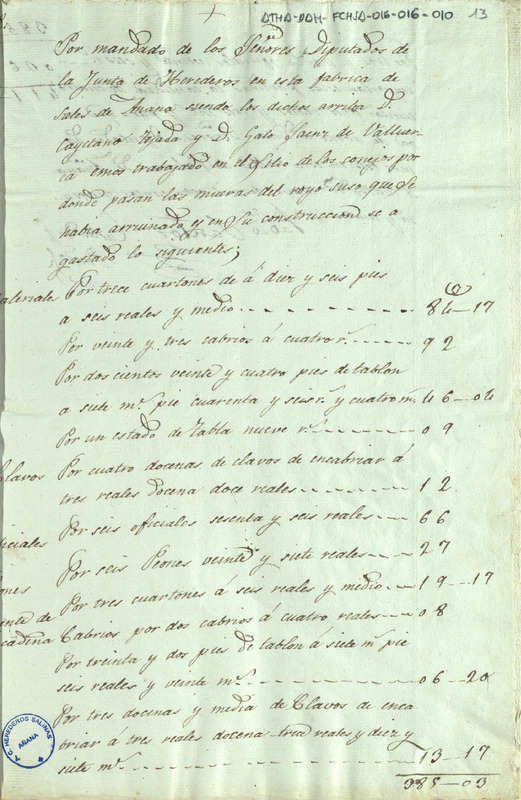 ATHA-DAH-FCHSA-016-016-010 13
Por mandado de los Señores Diputados de
la Junta de Herederos en esta fabrica de
Sales de Añana siendo los dichos arriba D.
Cayetano Tejada y D. Galo Saenz de Valluer-
ca emos trabajado en el Sitio de los conejos por
donde pasan las mueras del royo suso que se
habia arruinado, y en su construccion se a
gastado lo siguientes;
ateriale Por trece cuartones de á diez y seis pies
a seis reales y medio 84-17
Por veinte y tres cabrios á cuatro r.s 92
Por dos cientos veinte y cuatro pies de tablon
a siete m.s pie cuarenta y seis r.s y cuatro m.s 46-04
Por un estado de tabla nueve r.s 09
Clavos Por cuatro docenas de clavos de encabriar á
tres reales docena doce reales 12
iciales Por seis oficiales sesenta y seis reales 66
ones Por seis Peones veinte y siete reales 27
ente de Por tres cuartones á seis reales y medio 19-17
cadena Cabrios por dos cabrios á cuatro reales 08
Por treinta y dos pies de tablon á siete m.s pie
seis reales y veinte m.s 06-20
Por tres docenas y media de Clavos de enca
briar á tres reales docena trece reales y diez y
siete m.s 13-17
385-03
A.C. HEREDEROS SALINAS
AÑANA